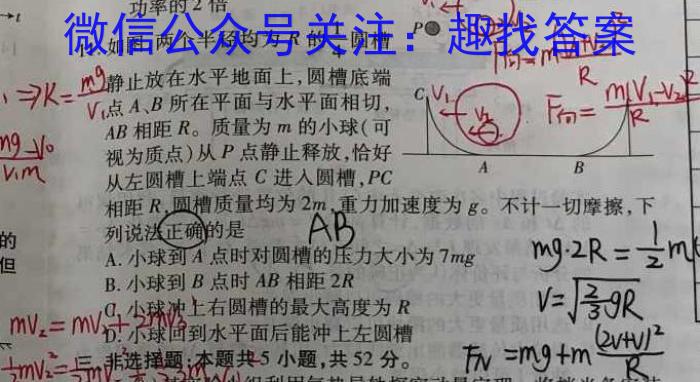 功率的2倍
微信公众号关注：趣找答案
如图,两个半径均为R的1/4圆槽
静止放在水平地面上,圆槽底端
点A、B所在平面与水平面相切,
AB相距R。质量为m的小球(可
视为质点)从P点静止释放,恰好
从左圆槽上端点C进入圆槽,PC
相距R,圆槽质量均为2m,重力加速度为g。不计一切摩擦,下
列说法正确的是
AB
A. 小球到A点时对圆槽的压力大小为7mg
B. 小球到B点时AB相距2R
C. 小球冲上右圆槽的最大高度为R
D. 小球回到水平面后能冲上左圆槽
三、非选择题:本题共5小题,共52分。
P
C
V₁
V₂
A
B
R
F向=m(V₁-V₂)²/R
⇒K=mg/V₁
mg·2R=1/2m
V=√(2/3gR)
F_N=mg+m(2v+v)²/R
mV₂=mV₁+2mV₃
的
但